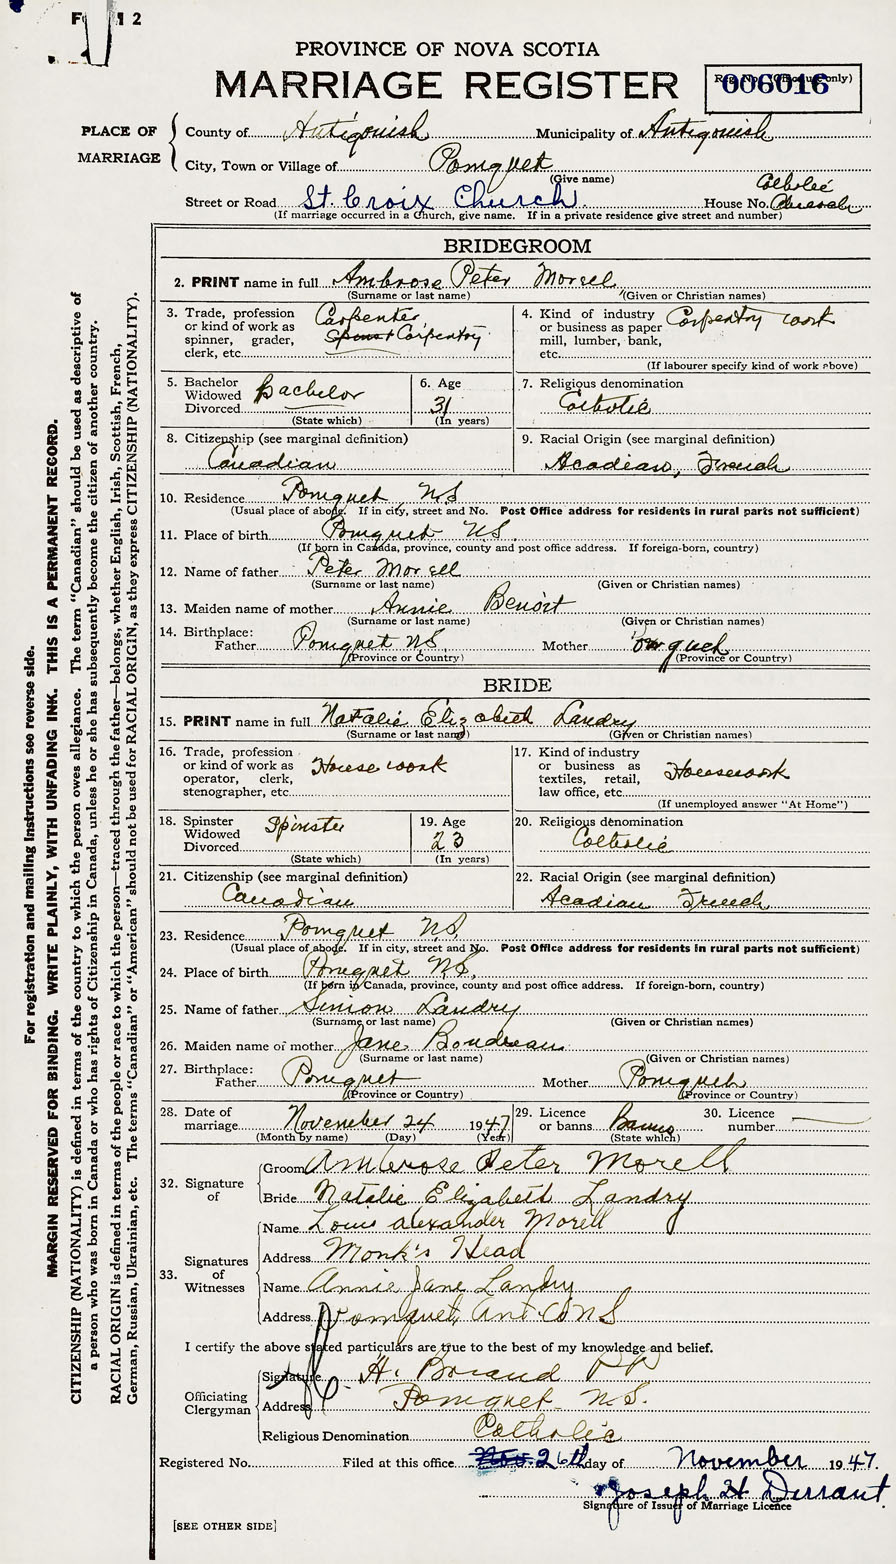 F 2
PROVINCE OF NOVA SCOTIA
MARRIAGE REGISTER
Reg. No. (Office use only)
006016
PLACE OF MARRIAGE
County of Antigonish Municipality of Antigonish
City, Town or Village of Pomquet
(Give name)
Catholic
Street or Road St. Croix Church. House No. Church
(If marriage occurred in a Church, give name. If in a private residence give street and number)
BRIDEGROOM
2. PRINT name in full Ambrose Peter Morell
(Surname or last name) (Given or Christian names)
3. Trade, profession or kind of work as spinner, grader, clerk, etc. Carpenter Carpentry
4. Kind of industry or business as paper mill, lumber, bank, etc. Carpentry work
(If labourer specify kind of work above)
5. Bachelor Widowed Divorced bachelor
(State which)
6. Age 31
(In years)
7. Religious denomination Catholic
8. Citizenship (see marginal definition) Canadian
9. Racial Origin (see marginal definition) Acadian, French
10. Residence Pomquet NS
(Usual place of abode. If in city, street and No. Post Office address for residents in rural parts not sufficient)
11. Place of birth Pomquet NS.
(If born in Canada, province, county and post office address. If foreign-born, country)
12. Name of father Peter Morell
(Surname or last name) (Given or Christian names)
13. Maiden name of mother Annie Benoit
(Surname or last name) (Given or Christian names)
14. Birthplace: Father Pomquet NS. Mother Pomquet
(Province or Country) (Province or Country)
BRIDE
15. PRINT name in full Natalie Elizabeth Landry
(Surname or last name) (Given or Christian names)
16. Trade, profession or kind of work as operator, clerk, stenographer, etc. House work
17. Kind of industry or business as textiles, retail, law office, etc. Housework
(If unemployed answer "At Home")
18. Spinster Widowed Divorced Spinster
(State which)
19. Age 23
(In years)
20. Religious denomination Catholic
21. Citizenship (see marginal definition) Canadian
22. Racial Origin (see marginal definition) Acadian French
23. Residence Pomquet NS
(Usual place of abode. If in city, street and No. Post Office address for residents in rural parts not sufficient)
24. Place of birth Pomquet NS.
(If born in Canada, province, county and post office address. If foreign-born, country)
25. Name of father Simon Landry
(Surname or last name) (Given or Christian names)
26. Maiden name of mother Jane Boudreau
(Surname or last name) (Given or Christian names)
27. Birthplace: Father Pomquet Mother Pomquet
(Province or Country) (Province or Country)
28. Date of marriage November 24 1947
(Month by name) (Day) (Year)
29. Licence or banns Banns
(State which)
30. Licence number
32. Signature of
Groom Ambrose Peter Morell
Bride Natalie Elizabeth Landry
33. Signatures of Witnesses
Name Louis alexander Morell
Address Monk's Head
Name Annie Jane Landry
Address Pomquet Ant. Co NS
I certify the above stated particulars are true to the best of my knowledge and belief.
Officiating Clergyman
Signature H. Briand PP
Address Pomquet N.S.
Religious Denomination Catholic
Registered No. Filed at this office Nov. 26th day of November 1947.
Joseph H Durrant
Signature of Issuer of Marriage Licence
[SEE OTHER SIDE]
For registration and mailing instructions see reverse side.
MARGIN RESERVED FOR BINDING. WRITE PLAINLY, WITH UNFADING INK. THIS IS A PERMANENT RECORD.
CITIZENSHIP (NATIONALITY) is defined in terms of the country to which the person owes allegiance. The term "Canadian" should be used as descriptive of
a person who was born in Canada or who has rights of Citizenship in Canada, unless he or she has subsequently become the citizen of another country.
RACIAL ORIGIN is defined in terms of the people or race to which the person—traced through the father—belongs, whether English, Irish, Scottish, French,
German, Russian, Ukrainian, etc. The terms "Canadian" or "American" should not be used for RACIAL ORIGIN, as they express CITIZENSHIP (NATIONALITY).